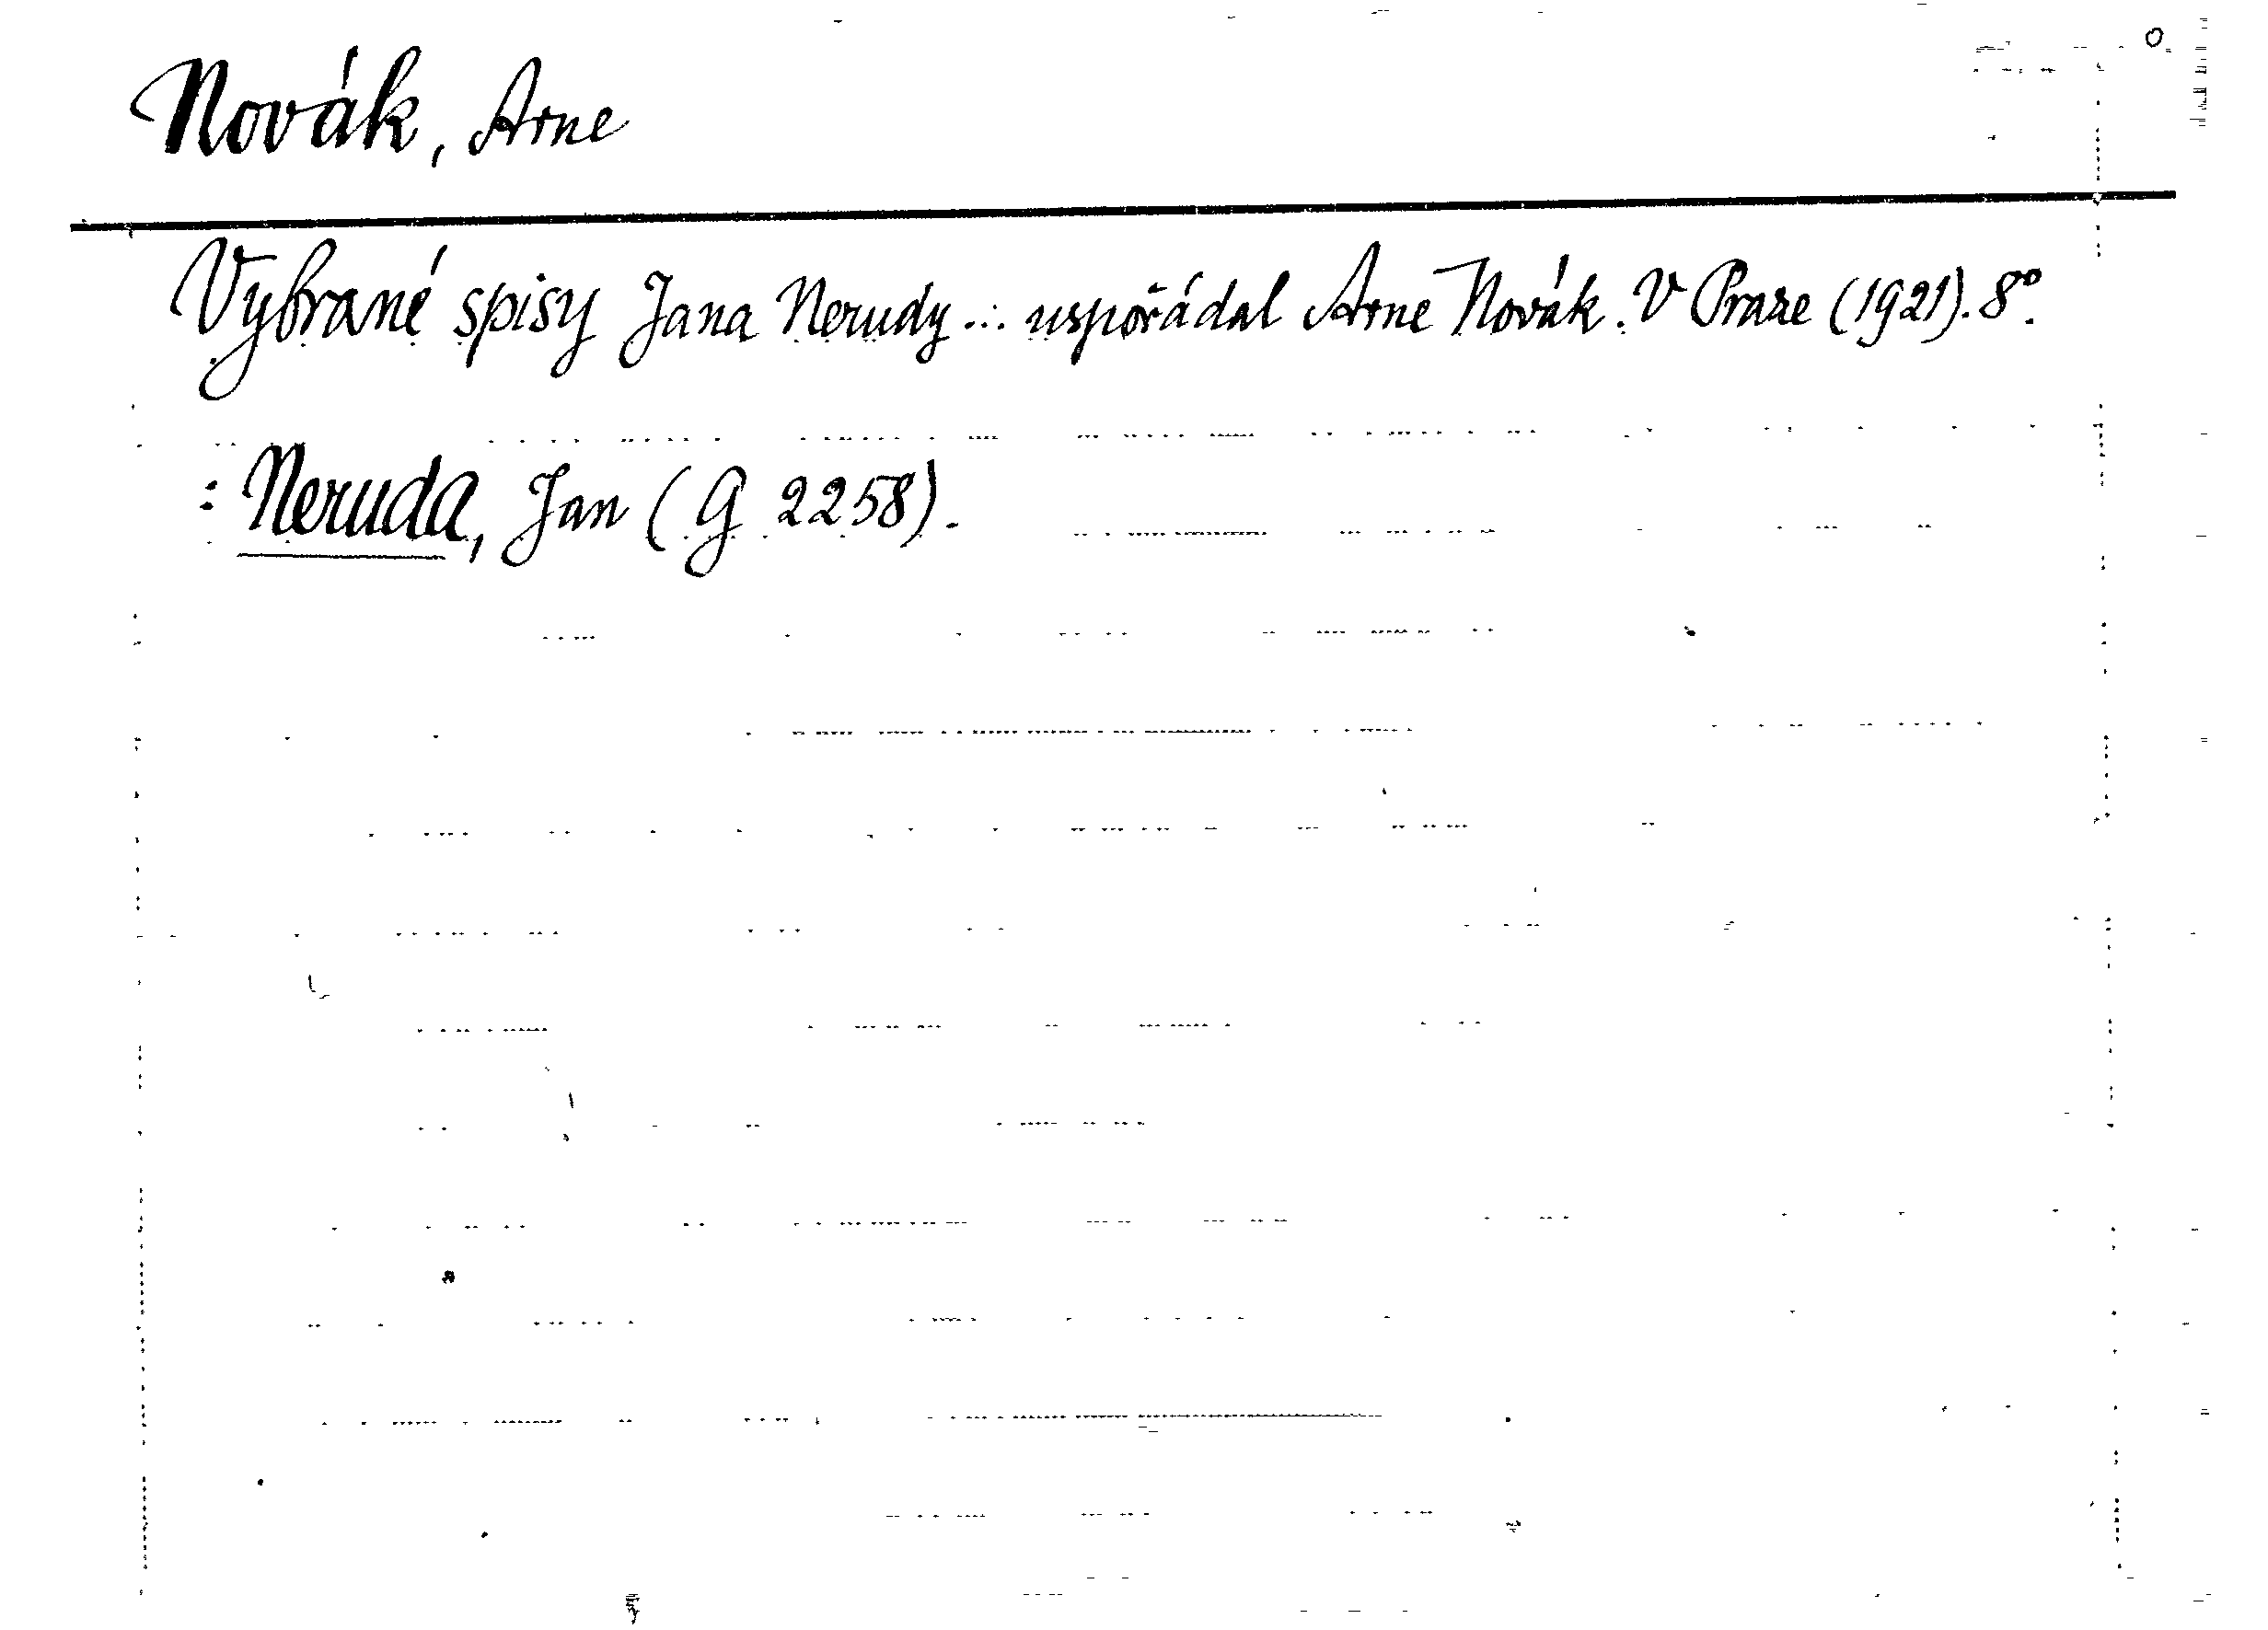 Novák, Arne
Vybrané spisy Jana Nerudy ... uspořádal Arne Novák. V Praze (1921). 8°.
: Neruda, Jan (G 2258).